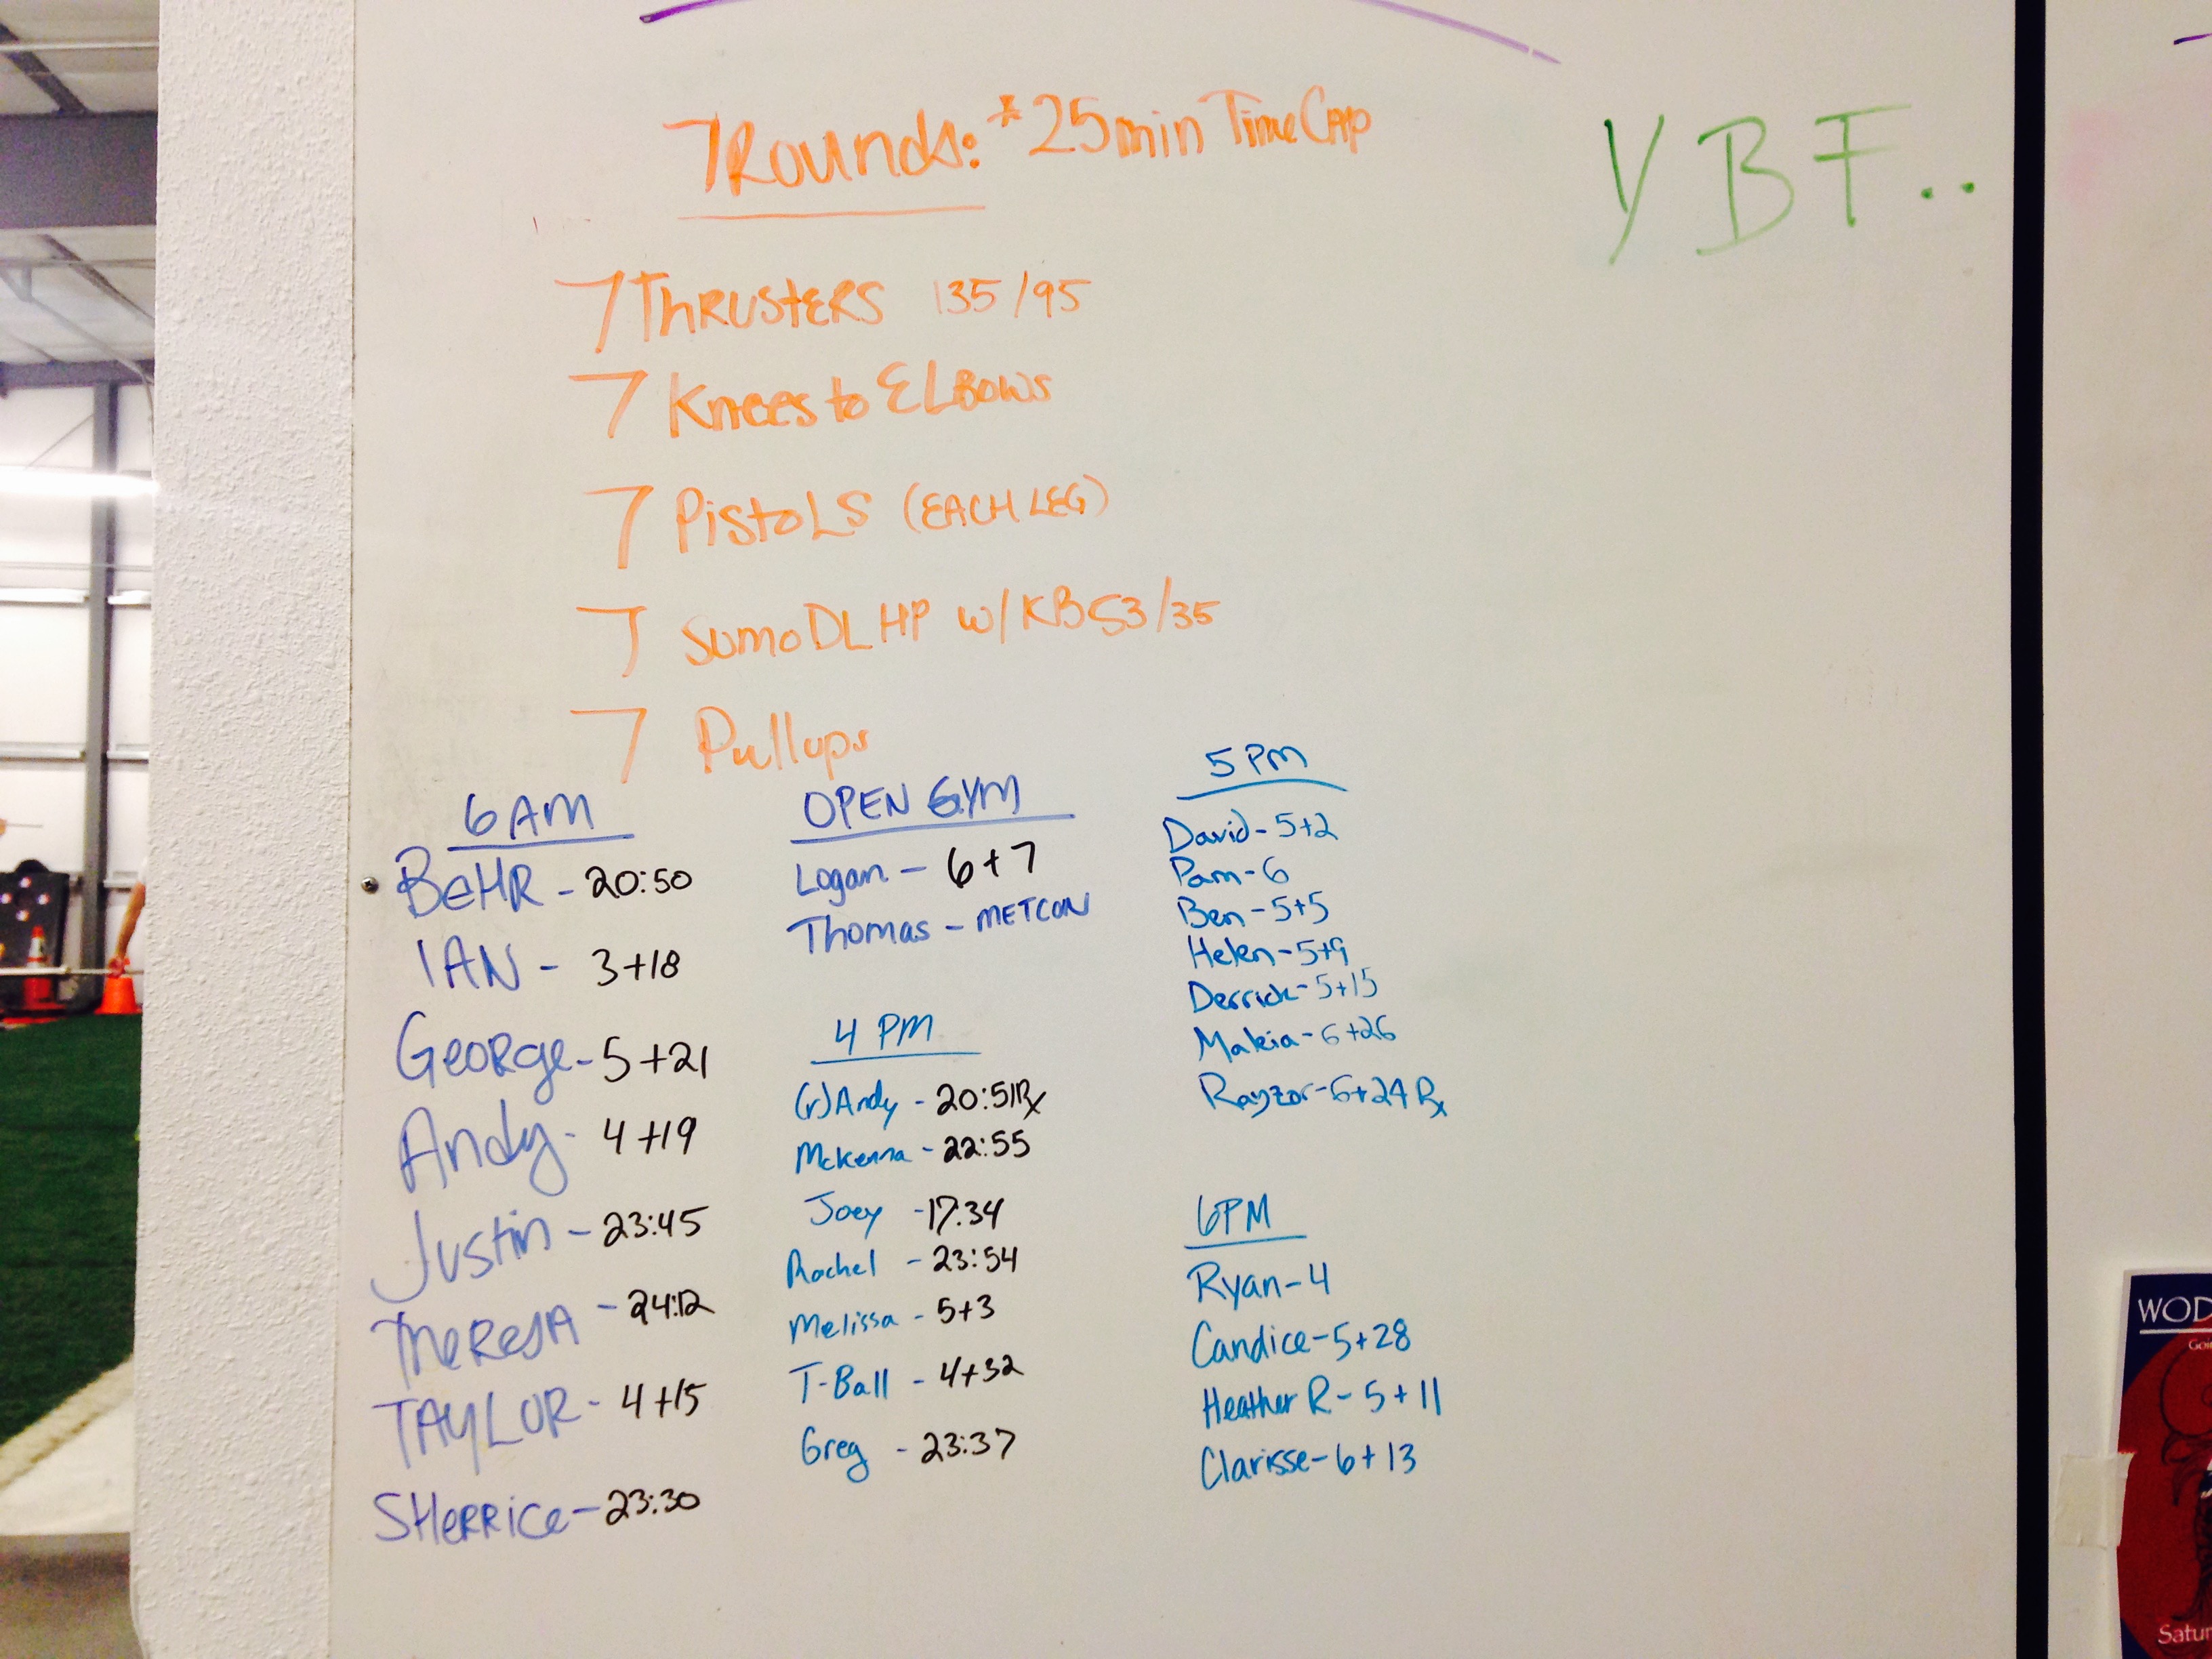 7 Rounds: *25 min Time Cap
YBF..
7 Thrusters 135/95
7 Knees to Elbows
7 Pistols (EACH LEG)
7 Sumo DLHP w/ KB 53/35
7 Pullups
6 AM
BeHR - 20:50
IAN - 3+18
George - 5+21
Andy - 4+19
Justin - 23:45
Theresa - 24:12
TAYLOR - 4+15
SHerrice - 23:30
OPEN GYM
Logan - 6+7
Thomas - METCON
4 PM
(r)Andy - 20:51 Rx
McKenna - 22:55
Joey - 17:34
Rachel - 23:54
Melissa - 5+3
T-Ball - 4+32
Greg - 23:37
5 PM
David - 5+2
Pam - 6
Ben - 5+5
Helen - 5+9
Derrick - 5+15
Makia - 6+26
Rayzor - 6+24 Rx
6PM
Ryan - 4
Candice - 5+28
Heather R - 5+11
Clarisse - 6+13
WOD
Satur